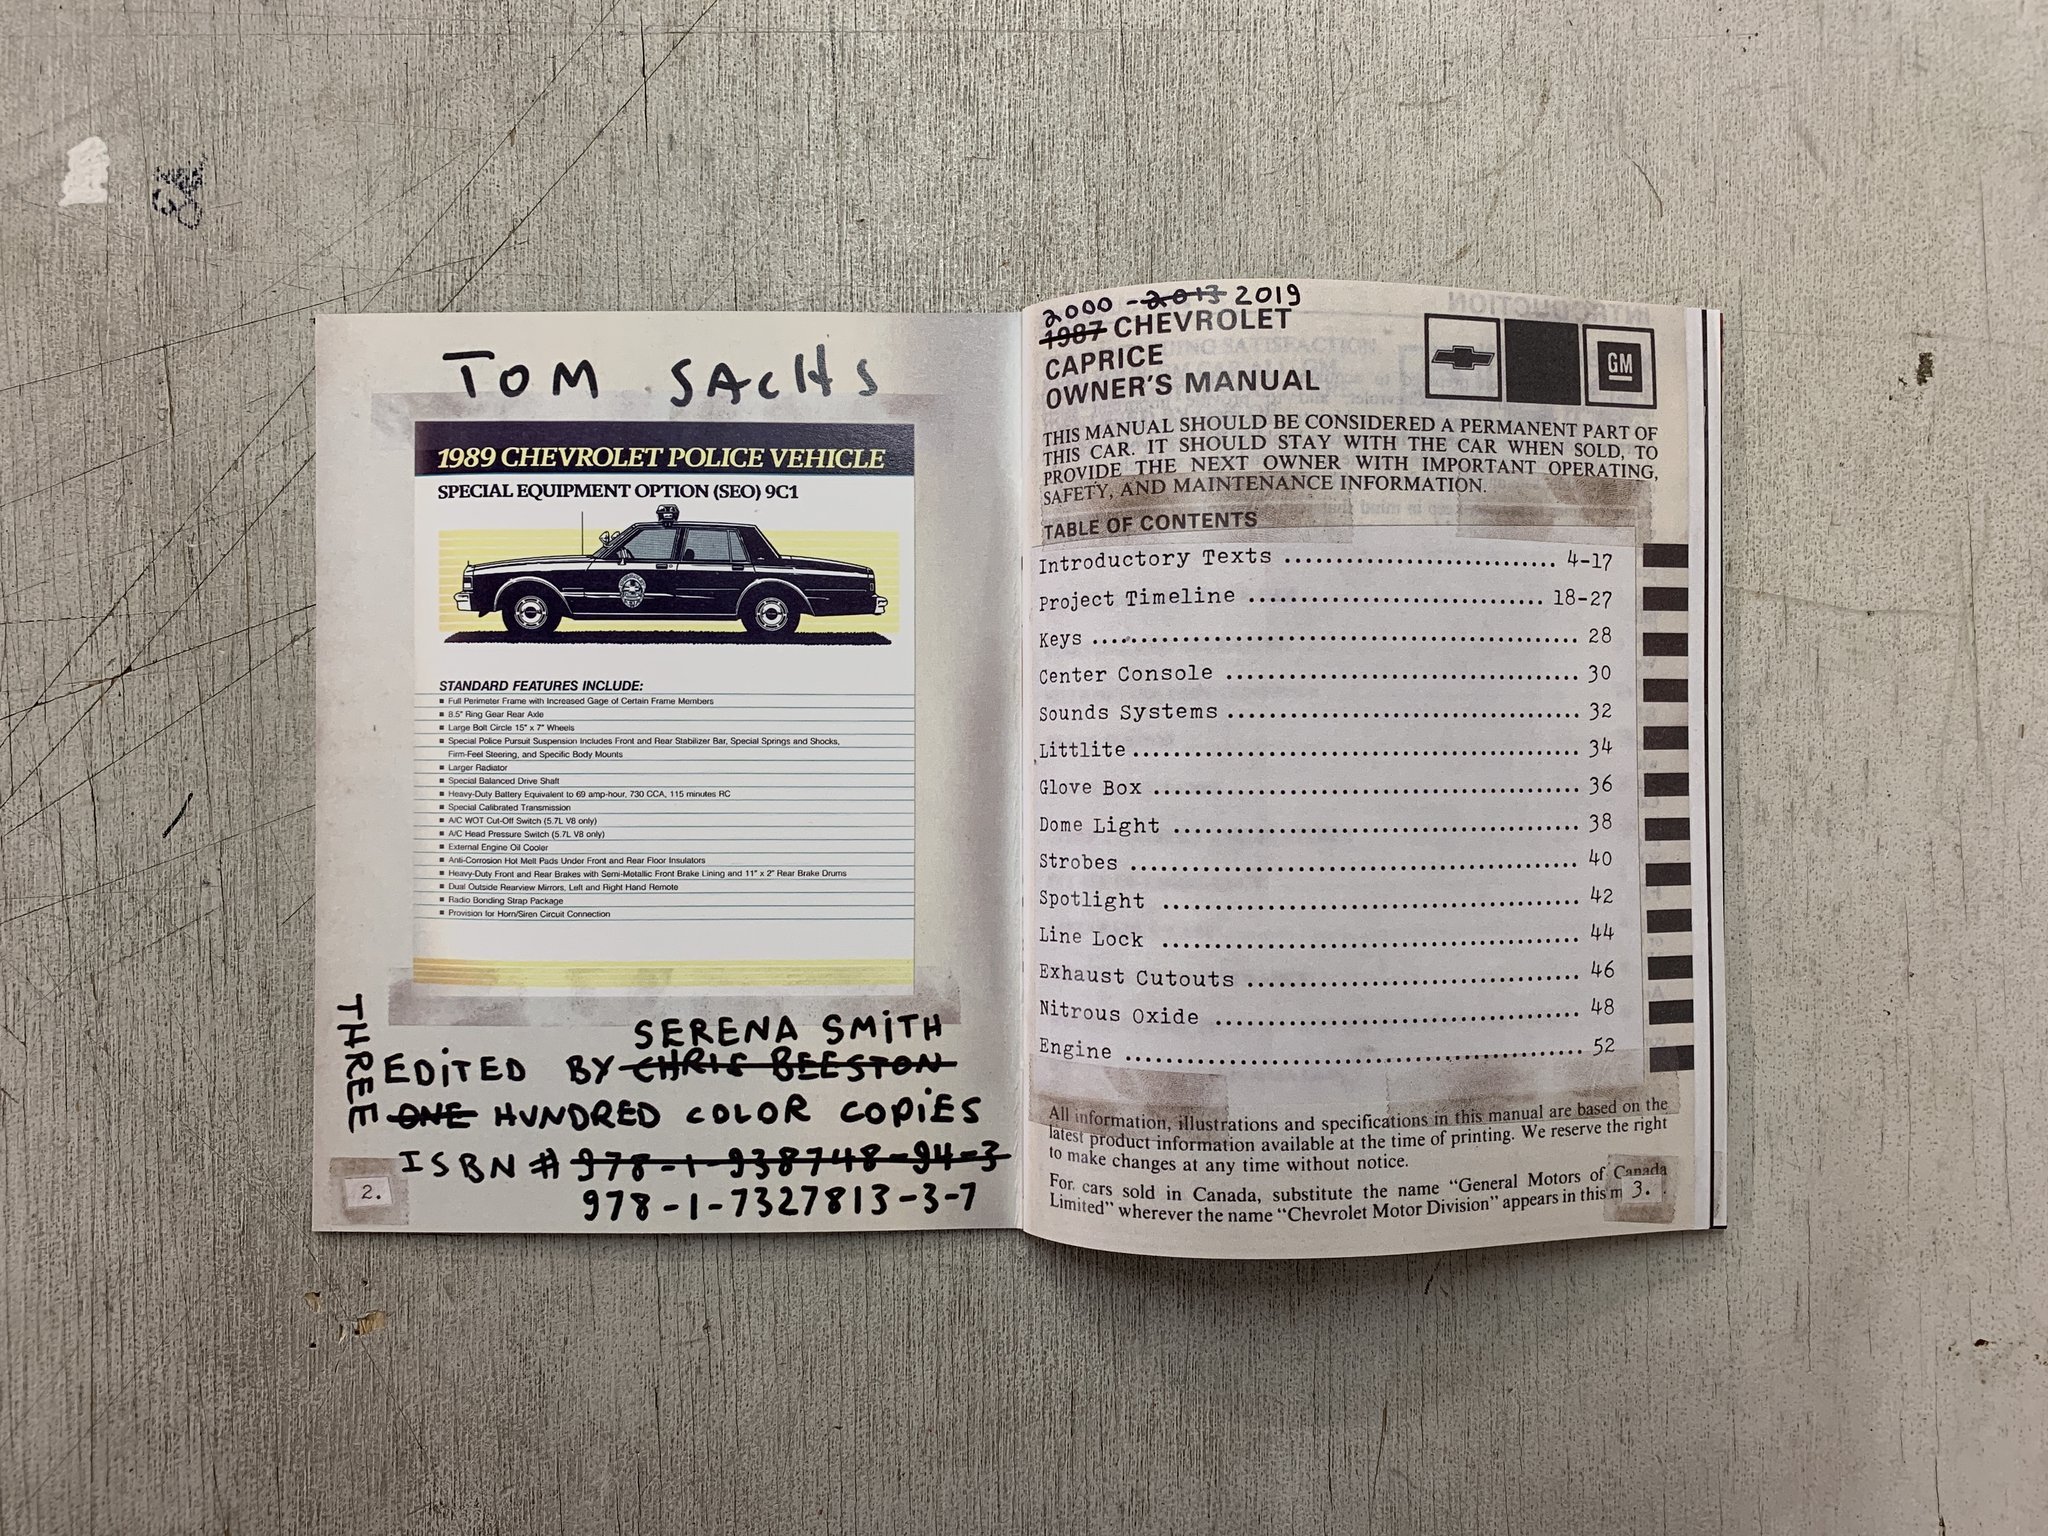 TOM SACHS
1989 CHEVROLET POLICE VEHICLE
SPECIAL EQUIPMENT OPTION (SEO) 9C1
STANDARD FEATURES INCLUDE:
■ Full Perimeter Frame with Increased Gage of Certain Frame Members
■ 8.5" Ring Gear Rear Axle
■ Large Bolt Circle 15" x 7" Wheels
■ Special Police Pursuit Suspension Includes Front and Rear Stabilizer Bar, Special Springs and Shocks,
Firm-Feel Steering, and Specific Body Mounts
■ Larger Radiator
■ Special Balanced Drive Shaft
■ Heavy-Duty Battery Equivalent to 69 amp-hour, 730 CCA, 115 minutes RC
■ Special Calibrated Transmission
■ A/C WOT Cut-Off Switch (5.7L V8 only)
■ A/C Head Pressure Switch (5.7L V8 only)
■ External Engine Oil Cooler
■ Anti-Corrosion Hot Melt Pads Under Front and Rear Floor Insulators
■ Heavy-Duty Front and Rear Brakes with Semi-Metallic Front Brake Lining and 11" x 2" Rear Brake Drums
■ Dual Outside Rearview Mirrors, Left and Right Hand Remote
■ Radio Bonding Strap Package
■ Provision for Horn/Siren Circuit Connection
SERENA SMITH
EDITED BY CHRIS BEESTON
THREE
ONE HUNDRED COLOR COPIES
ISBN # 978-1-938748-94-3
978-1-7327813-3-7
2.
2000 - 2013 2019
1987 CHEVROLET
CAPRICE
OWNER'S MANUAL
GM
THIS MANUAL SHOULD BE CONSIDERED A PERMANENT PART OF
THIS CAR. IT SHOULD STAY WITH THE CAR WHEN SOLD, TO
PROVIDE THE NEXT OWNER WITH IMPORTANT OPERATING,
SAFETY, AND MAINTENANCE INFORMATION.
TABLE OF CONTENTS
Introductory Texts ............................ 4-17
Project Timeline .............................. 18-27
Keys .......................................... 28
Center Console ................................ 30
Sounds Systems ................................ 32
Littlite ...................................... 34
Glove Box ..................................... 36
Dome Light .................................... 38
Strobes ....................................... 40
Spotlight ..................................... 42
Line Lock ..................................... 44
Exhaust Cutouts ............................... 46
Nitrous Oxide ................................. 48
Engine ........................................ 52
All information, illustrations and specifications in this manual are based on the
latest product information available at the time of printing. We reserve the right
to make changes at any time without notice.
For cars sold in Canada, substitute the name "General Motors of Canada
Limited" wherever the name "Chevrolet Motor Division" appears in this
3.